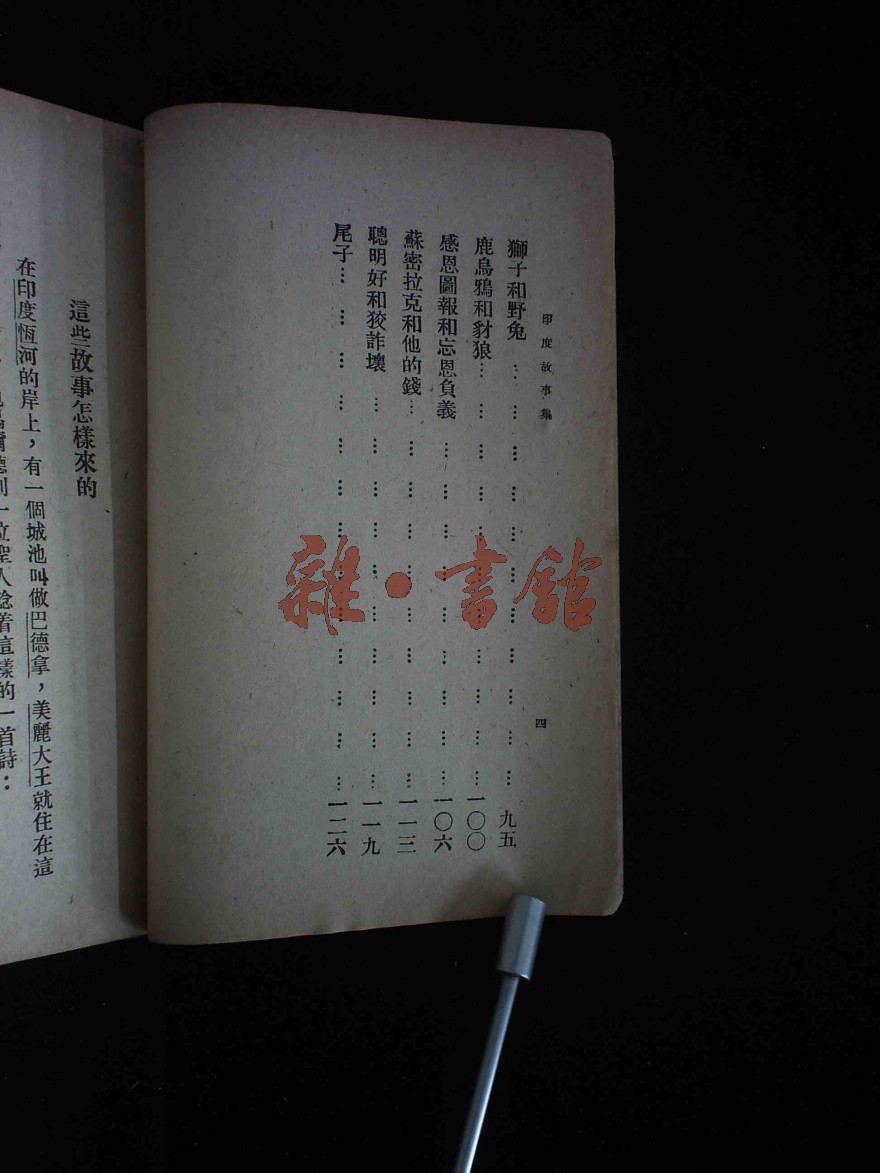 印度故事集
獅子和野兔……………………………………九五
鹿烏鴉和豺狼……………………………………一〇〇
感恩圖報和忘恩負義……………………………………一〇六
蘇密拉克和他的錢……………………………………一一三
聰明好和狡詐壞……………………………………一一九
尾子……………………………………一二六
四
雜·書館
這些故事怎樣來的
在印度恆河的岸上，有一個城池叫做巴德拿，美麗大王就住在這
德到一位聖人唸着這樣的一首詩：